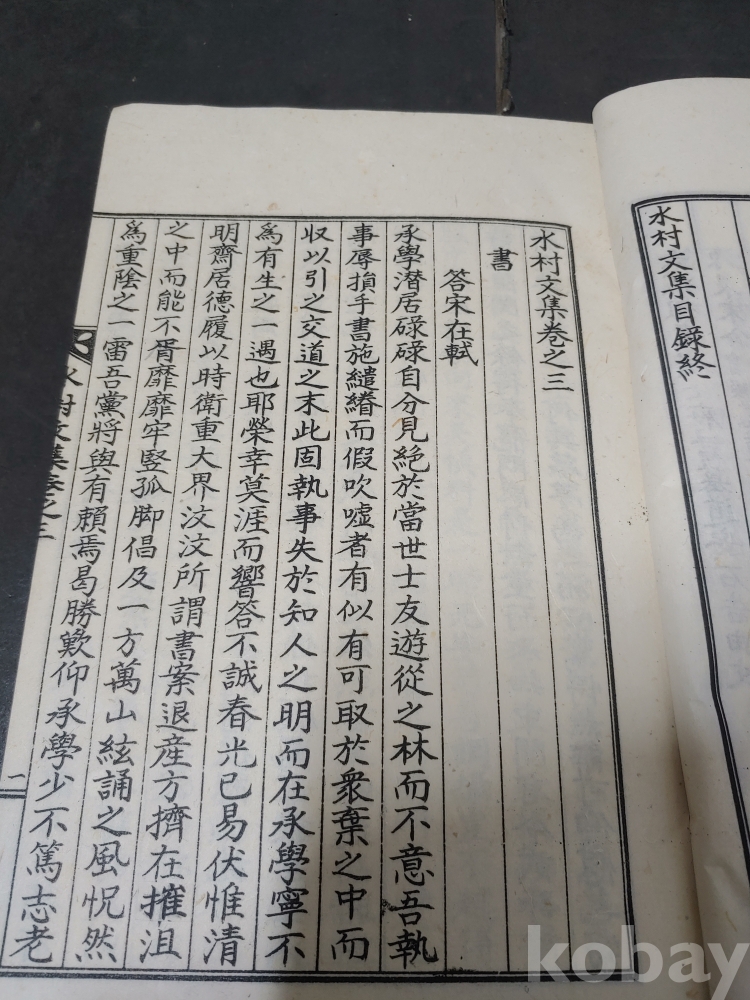 水村文集目錄終
水村文集卷之三
書
答宋在軾
承學潛居碌碌自分見絶於當世士友遊從之林而不意吾執
事辱損手書施繾綣而假吹噓者有似有可取於衆棄之中而
収以引之交道之末此固執事失於知人之明而在承學寧不
爲有生之一遇也耶榮幸莫涯而響答不誠春光已易伏惟清
明齋居德履以時衛重大界汶汶所謂書案退産方擠在摧沮
之中而能不胥靡靡牢竪孤脚倡及一方萬山絃誦之風怳然
爲重陰之一雷吾黨將與有賴焉曷勝歎仰承學少不篤志老
水村文集卷之三
一
kobay